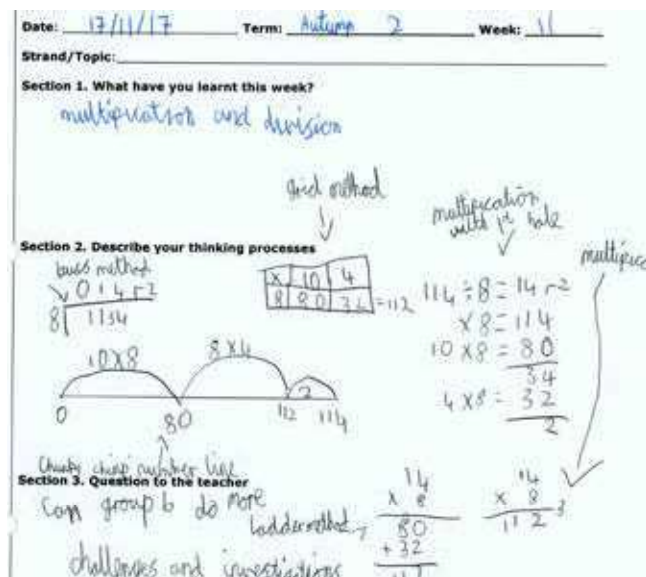 Date: 17/11/17 Term: Autumn 2 Week: 11
Strand/Topic:
Section 1. What have you learnt this week?
multiplication and division
grid method
multiplication
with
Section 2. Describe your thinking processes
bus method
0 1 4 r 2
8 1134
x 10 4
8 80 32 =112
114 ÷ 8 = 14 r 2
x 8 = 114
10 x 8 = 80
34
4 x 8 = 32
2
10 x 8
8 x 4
2
0 80 112 114
number line
Section 3. Question to the teacher
can group b do more
challenges and investigations
ladder method
14
x 8
80
+ 32
112
14
x 8
11 2
3